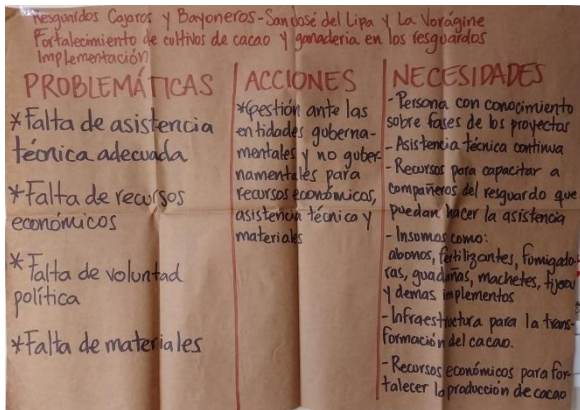 Resguardos Cajaros y Bayoneros-San José del Lipa y La Vorágine
Fortalecimiento de cultivos de cacao y ganaderia en los resguardos
Implementación
PROBLEMÁTICAS
*Falta de asistencia
técnica adecuada
*Falta de recursos
económicos
*Falta de voluntad
política
*Falta de materiales
ACCIONES
*Gestión ante las
entidades guberna-
mentales y no guber-
namentales para
recursos económicos,
asistencia técnica y
materiales
NECESIDADES
-Persona con conocimiento
sobre fases de los proyectos
-Asistencia técnica continua
-Recursos para capacitar a
compañeros del resguardo que
puedan hacer la asistencia
-Insumos como:
abonos, fertilizantes, fumigado-
ras, guadañas, machetes, tijeras
y demas implementos
-Infraestructura para la trans-
formación del cacao.
-Recursos económicos para for-
talecer la producción de cacao